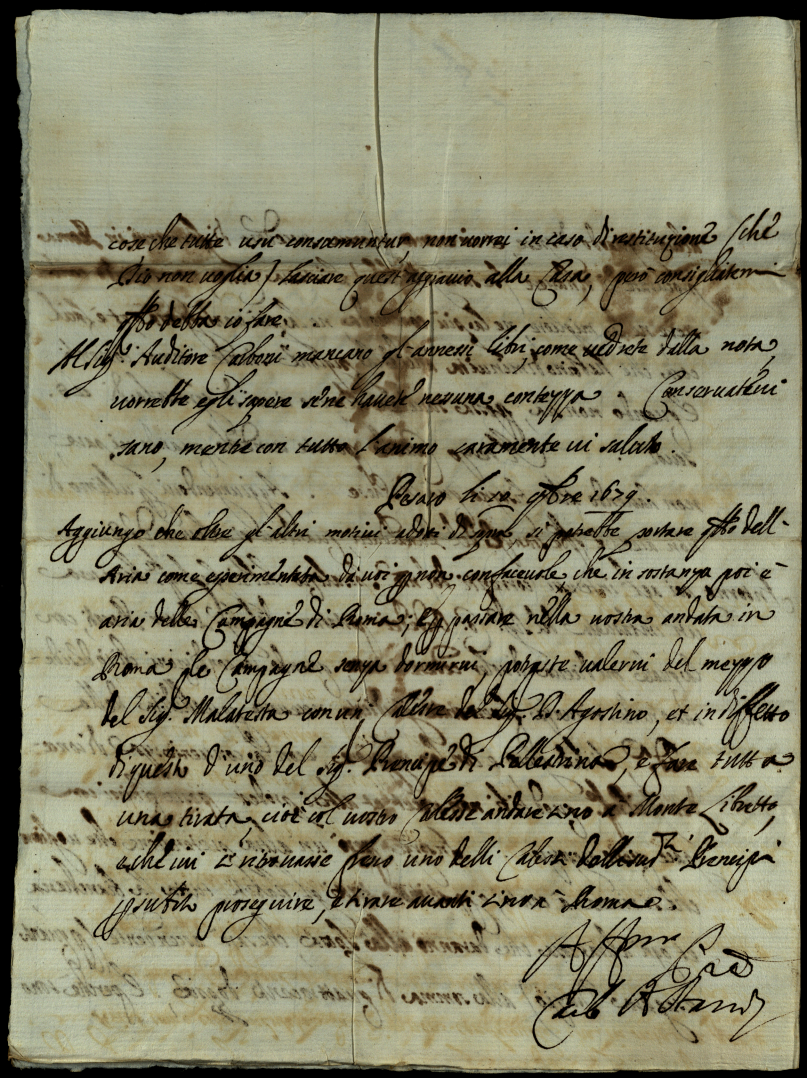 cose che tutte usu consumuntur, non vorrei in caso di restituzione (che
Dio non voglia) lasciare quest'aggravio alla Casa, però consigliatemi
debba io fare.
Al Sig.r Auditore mancano gl'annessi libri, come vedrete dalla nota,
vorrebbe egli sapere se ne havete nessuna contezza Conservatevi
sano, mentre con tutto l'animo caramente vi saluto
Pesaro li 10 9bre 1679.
Aggiungo che oltre gl'altri motivi si potrebbe portare dell'
Aria come esperimentata da voi non confacevole che in sostanza poi è
aria delle Campagne di Roma, passare nella vostra andata in
Roma Campagne senza dormirvi, potreste valervi del mezzo
del Sig.r Malatesta con un del Sig.r D. Agostino, et in diffetto
di questi d'uno del Sig.r Prencipe di Pallestrina, e far tutta
una tirata, cioè col vostro Calesse andare sino a Monte Libretto,
e che ivi si ritrovasse uno delli Calessi Prencipi
proseguire, e tirare avanti sino a Roma.